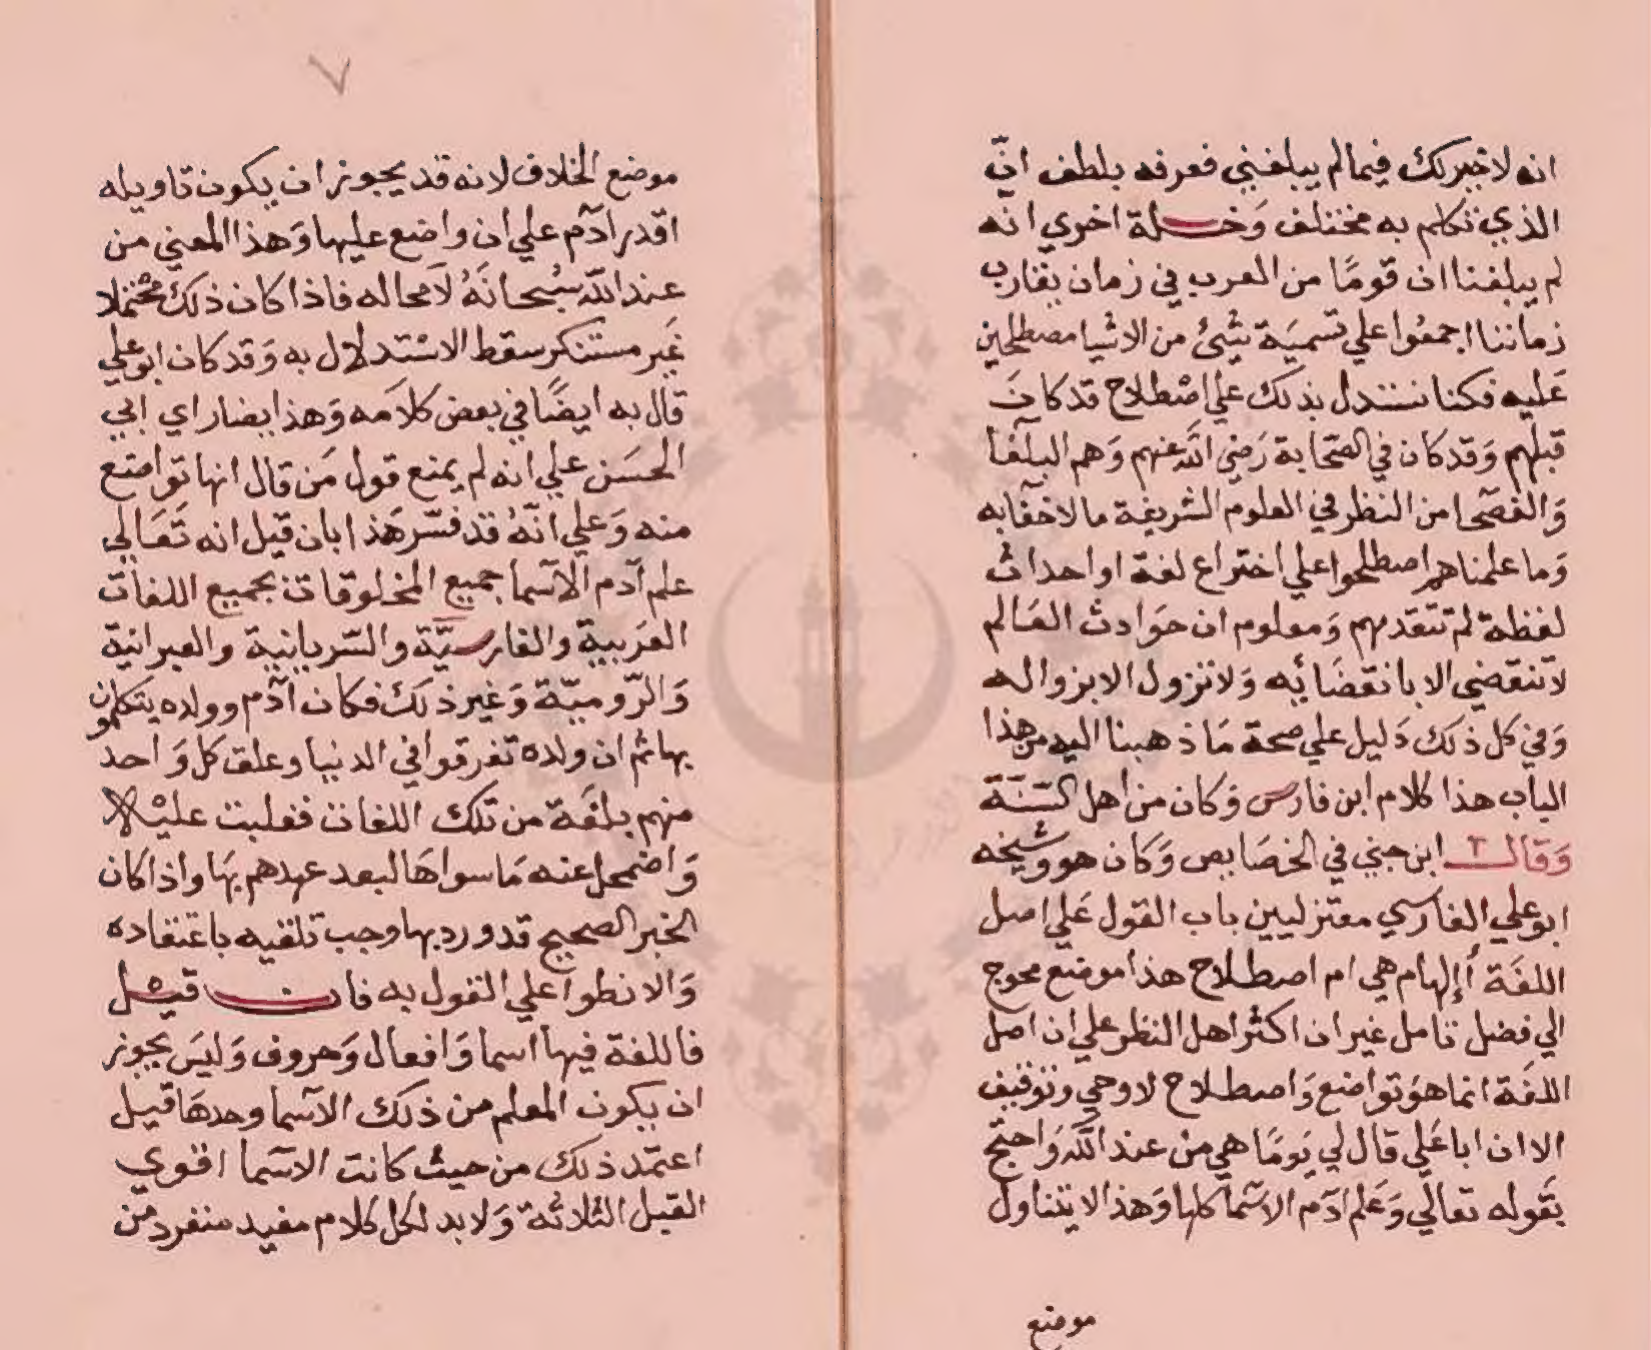 انه لا خبر لك فيما لم يبلغني فعرفه بلطف انّ
الذي تكلم به مختلف وَخلة اخري انه
لم يبلغنا ان قومًا من العرب في زمان يقارب
زماننا اجمعوا علي تسميَة شيئ من الاشيا مصطلحين
عَليه فكنا نستدل بذلك علي اصْطلاح قد كانَ
قبلهم وَقد كان في الصّحابة رَضي اللّه عنهم وَهم البلغا
وَالفصحا من النظر في العلوم الشريفة ما لا خفا به
وَما علمناهم اصطلحوا علي اختراع لغة او احداث
لفظة لم تتقدمهم وَمعلوم ان حوَادث العَالم
لا تنقضي الا بانقضَائه وَلا تزول الا بزواله
وَفي كل ذلك دَليل علي صحة مَا ذهبنا اليه من هذا
الباب هذا كلام ابن فارس وَكان من اهل السّنَّة
وَقال ابن جني في الخصَايص وَكان هو وشيخه
ابو علي الفارسي معتزليين باب القول عَلي اصل
اللغَة أإلهام هي ام اصطلاح هذا موضع محوج
الي فضل تامل غير ان اكثر اهل النظر علي ان اصل
اللغَة انما هوَ تواضع وَاصطلاح لا وحي وتوقيف
الا ان ابا عَلي قال لي يَومًا هي منْ عند اللَّه وَاحتج
بقَوله تعالي وَعَلم ادَم الاسّما كلها وَهذا لا يتناول
موضع
٧
موضع الخلاف لانه قد يجوز ان يكون تاويله
اقدر آدَم علي ان واضع عليها وَهذا المعني من
عند اللّه سُبحانَهُ لَا محاله فاذا كان ذلك محْتملا
غَير مستنكر سقط الاسْتدلال به وَقد كان ابو علي
قال به ايضًا في بعض كلامَه وَهذا يضا راي ابي
الحسَن علي انه لم يمنع قول مَن قال انها تواضع
منه وَعلي انّهُ قد فسّر هَذا بان قيل انه تَعَالي
علم آدم الاسّما جميع المخلوقات بجميع اللغات
العَربية والفارسيَّة والسّريانية والعبرانية
وَالرّوميّة وَغير ذلكَ فكان آدَم وولده يتكلمون
بها ثم ان ولده تفرقوا في الدنيا وعلق كل وَاحد
منهم بلغَة من تلك اللغات فغلبت عليْه
وَاضمحل عنه مَا سواهَا لبعد عهدهم بهَا واذا كان
الخبر الصحيح قد ورد بها وجب تلقيه باعتقاده
وَالانطوا علي القول به فان قيْل
فاللغة فيها اسما وَافعال وَحروف وَليسَ يجوز
ان يكون المعلم من ذلك الاسّما وحدهَا قيل
اعتمد ذلك من حيث كانت الاسّما اقوي
القبل الثلاثة وَلا بد لكل كلام مفيد منفرد من